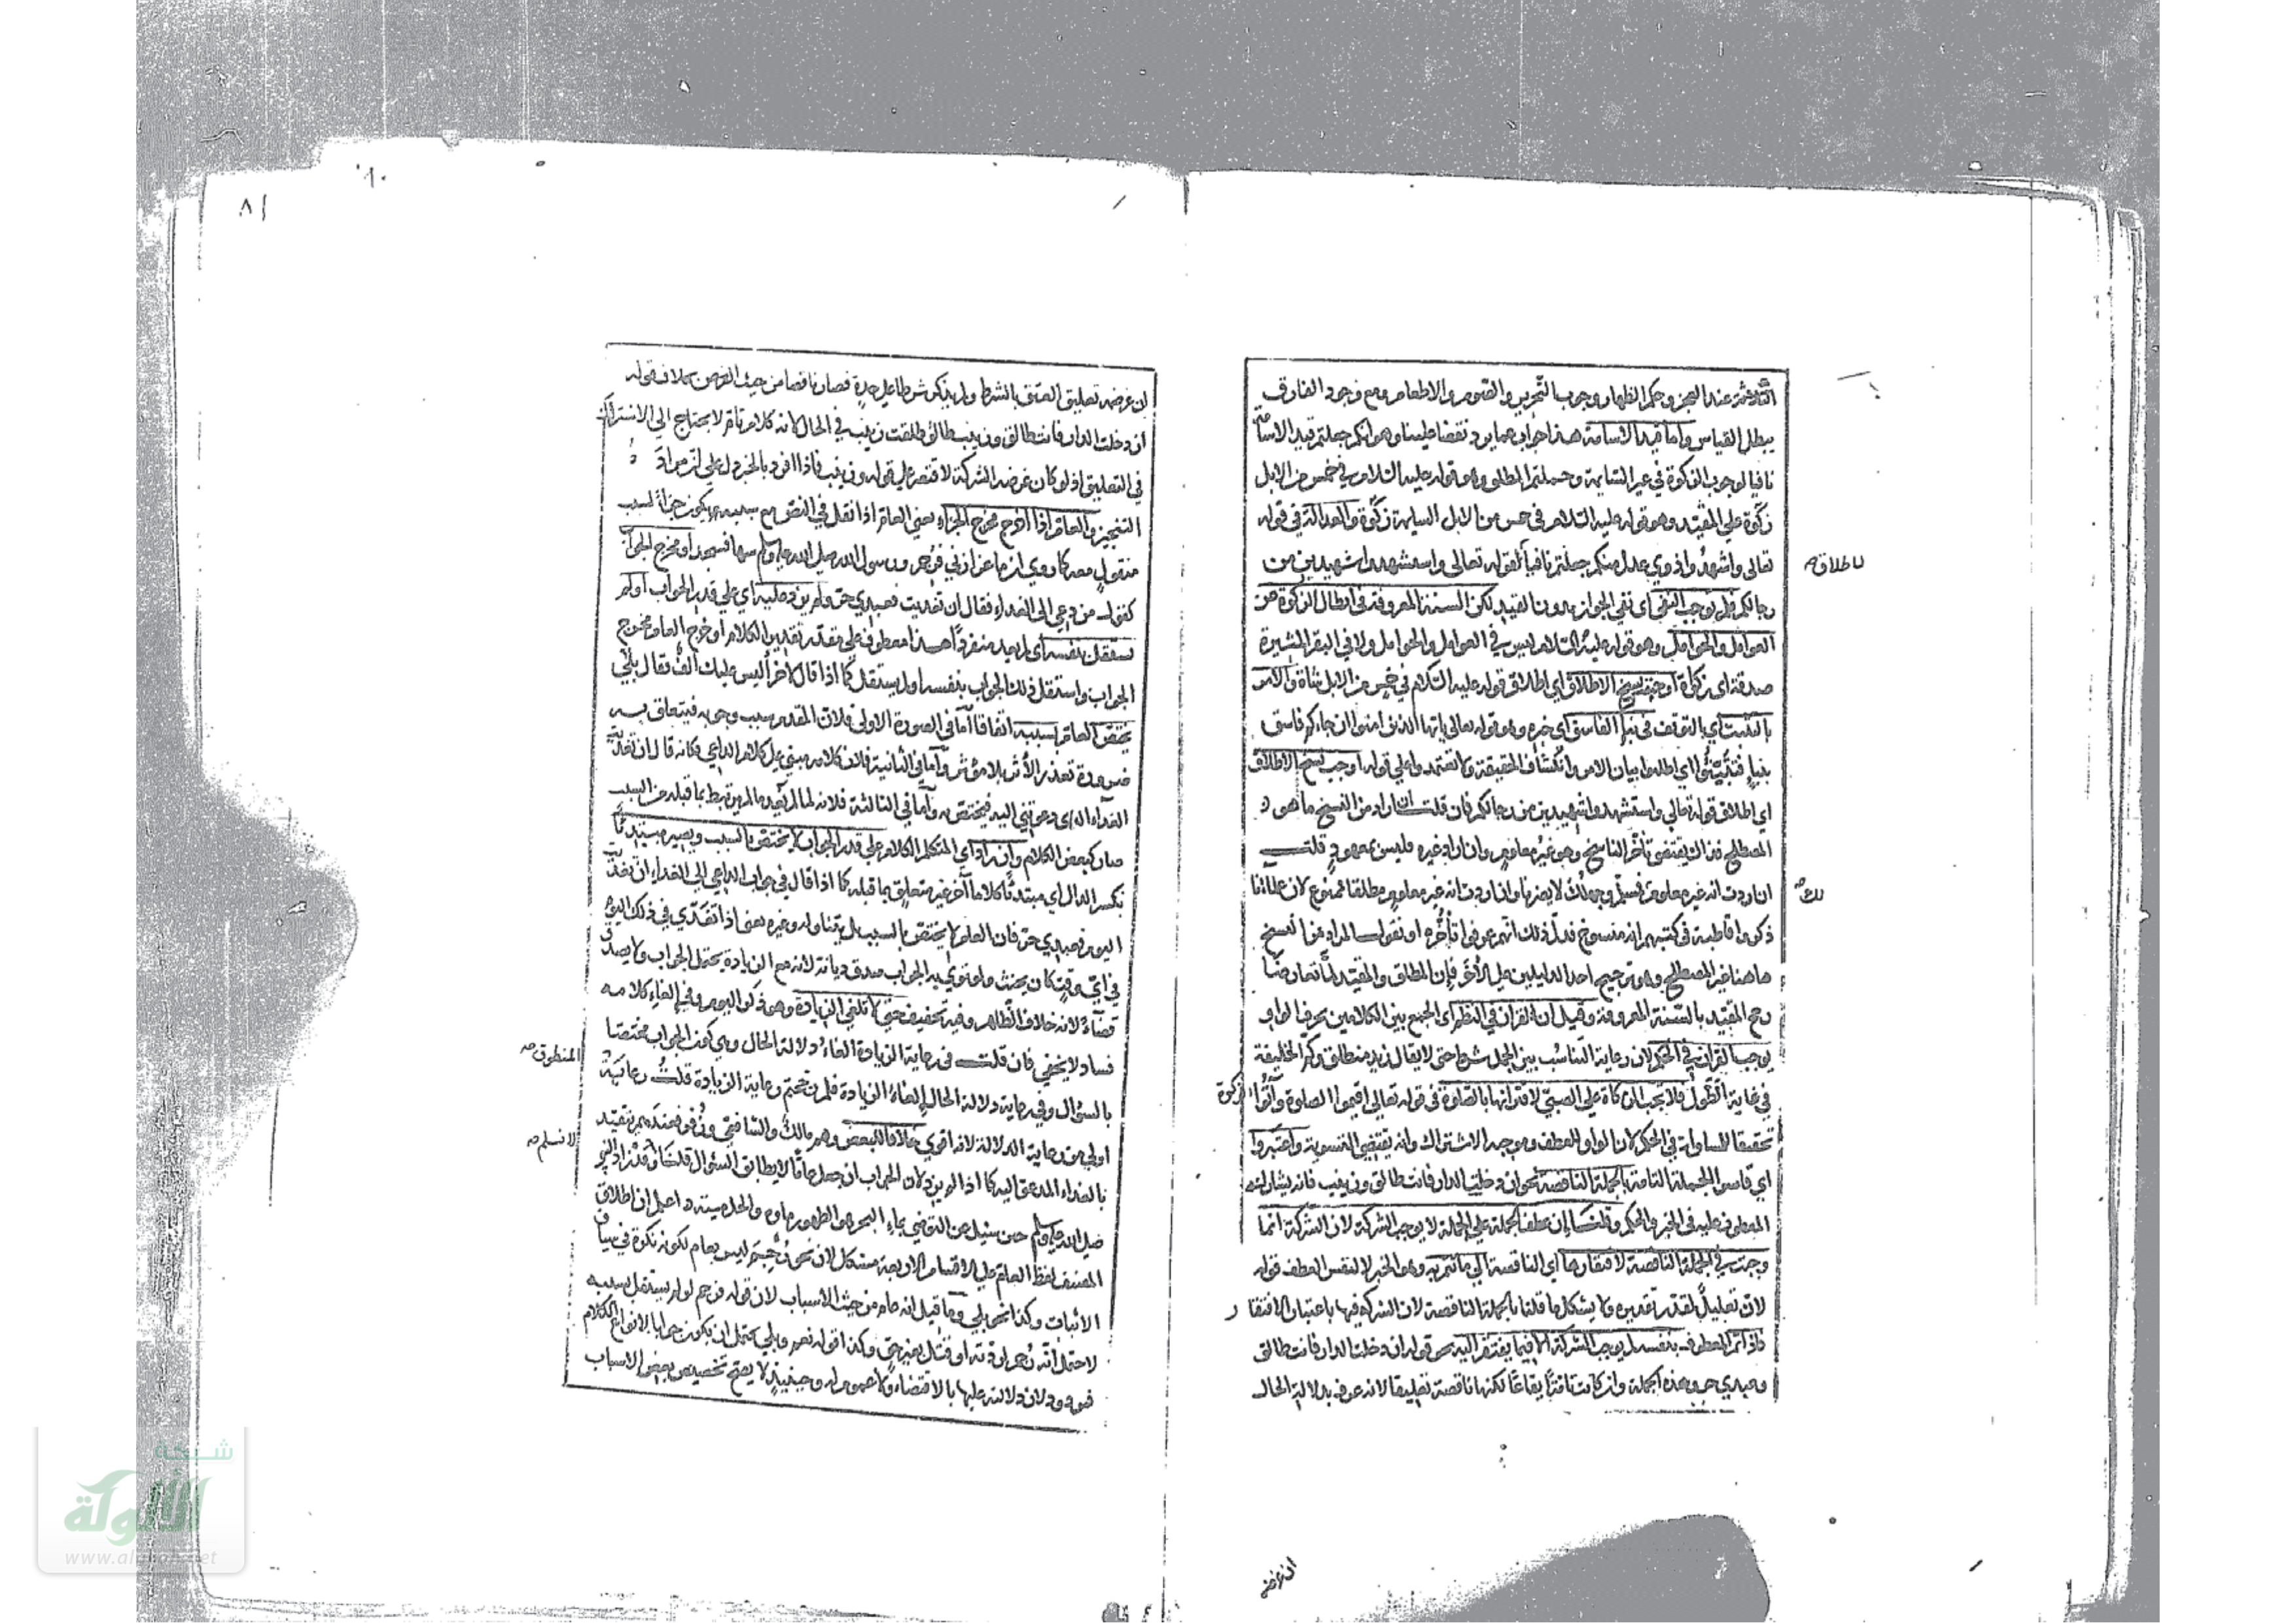 الثلاثة عند العجز وحكم الظهار وجوب التحرير والصوم والاطعام ومع وجود الفارق
يبطل القياس واما قيد الاسامة هذا جواب عما يرد نقضا علينا وهو انكم جعلتم قيد الاسامة
نافيا لوجوب الزكوة في غير السايمة وحملتم المطلق وهو قوله عليه السلام في خمس من الابل
زكوة على المقيد وهو قوله عليه السلام في خمس من الابل السايمة زكوة والعدالة في قوله
تعالى واشهدوا ذوي عدل منكم جعلتم نافيا لقوله تعالى واستشهدوا شهيدين من
لاطلاق صح
رجالكم فلم يوجب النفي اي نفي الجواز بدون القيد لكن السنة المعروفة في ابطال الزكوة عن
العوامل والحوامل وهو قوله عليه السلام ليس في العوامل والحوامل ولا في البقر المثيرة
صدقة اي زكوة اوجبت نسخ الاطلاق اي اطلاق قوله عليه السلام في خمس من الابل شاة والامر
بالتثبت اي بالتوقف في نبا الفاسق اي خبره وهو قوله تعالى يا ايها الذين امنوا ان جاءكم فاسق
بنبا فتثبتوا اي اطلبوا بيان الامر وانكشاف الحقيقة ولا تعتمدوا على قوله اوجب نسخ الاطلاق
اي اطلاق قوله تعالى واستشهدوا شهيدين من رجالكم فان قلت ان اراد من النسخ ما هو
المصطلح فذاك يقتضي تأخر الناسخ وهو غير معلوم وان اراد غيره فليس بمعهود قلت
ان اردت انه غير معلوم فمسلم وجهلك لا يضرنا وان اردت انه غير معلوم مطلقا فممنوع لان علماءنا
لك صح
ذكروا قاطبة في كتبهم انه منسوخ فدل ذلك انهم عرفوا تأخره او نقول المراد من النسخ
هاهنا غير المصطلح وهو ترجيح احد الدليلين على الآخر فان المطلق والمقيد لما تعارضا
رجح المقيد بالسنة المعروفة وقيل ان القران في النظم اي الجمع بين الكلامين بحرف الواو
يوجب القران في الحكم لان رعاية التناسب بين الجمل شرط حتى لا يقال زيد منطلق وكم الخليفة
في غاية الطول فلا تجب الزكاة على الصبي لاقترانها بالصلوة في قوله تعالى اقيموا الصلوة وآتوا الزكوة
تحقيقا للمساواة في الحكم لان الواو للعطف وموجبه الاشتراك وانه يقتضي التسوية واعتبروا
اي قاسوا الجملة التامة بالجملة الناقصة نحو ان دخلت الدار فانت طالق وزينب فانه يشارك
المعطوف عليه في الخبر والحكم وقلنا ان عطف الجملة على الجملة لا يوجب الشركة لان الشركة انما
وجبت في الجملة الناقصة لافتقارها اي الناقصة الى ما تتم به وهو الخبر لا لنفس العطف قوله
لان تعليل لمقدر تقديره ولا يشكل ما قلنا بالجملة الناقصة لان الشركة فيها باعتبار الافتقار
فاذا تم المعطوف بنفسه لم يوجب الشركة الا فيما يفتقر اليه نحو قوله ان دخلت الدار فانت طالق
وعبدي حر وهذه الجملة وان كانت تامة ايقاعا لكنها ناقصة تعليقا لانه عرف بدلالة الحال
ان غرضه
٨١
ان غرضه تعليق العتق بالشرط ولم يذكر شرطا على حدة فصار ناقصا من حيث الغرض بخلاف قوله
ان دخلت الدار فانت طالق وزينب طالق طلقت زينب في الحال لانه كلام تام لا يحتاج الى الاشتراك
في التعليق اذ لو كان غرضه الشركة لاقتصر على قوله وزينب فاذا افرد بالخبر دل على ان مراده
التنجيز والعام اذا خرج مخرج الجزاء يعني العام اذا نقل في النص مع سببه يكون جزاء لسبب
منقول معه كما روي ان ماعزا زنى فرجم ورسول الله صلى الله عليه وسلم سها فسجد او مخرج الجواب
كقول من دعي الى الغداء فقال ان تغديت فعبدي حر ولم يزد عليه اي على قدر الجواب او لم
يستقل بنفسه اي لم يفد منفردا هذا معطوف على مقدر تقدير الكلام او خرج العام مخرج
الجواب واستقل ذلك الجواب بنفسه او لم يستقل كما اذا قال لاخر أليس عليك الف فقال بلى
يختص العام بسببه اتفاقا اما في الصورة الاولى فلان المقدم سبب وجوبه فيتعلق به
ضرورة تعذر الأثر بلا مؤثر وأما في الثانية فلان كلامه مبني على كلام الداعي فكانه قال ان تغديت
الغداء الذي دعوتني اليه فيختص به وأما في الثالثة فلانه لما لم يفد ما لم يرتبط بما قبله من السبب
صار كبعض الكلام وان زاد اي المتكلم الكلام على قدر الجواب لا يختص بالسبب ويصير مبتدئا
بكسر الدال اي مبتدئا كلاما آخر غير متعلق بما قبله كما اذا قال في جواب الداعي الى الغداء ان تغديت
اليوم فعبدي حر فان العام لا يختص بالسبب بل يتناوله وغيره يعني اذا تغدى في ذلك اليوم
في اي وقت كان يحنث ولو نوى به الجواب صدق ديانة لانه مع الزيادة يحتمل الجواب ولا يصدق
قضاء لانه خلاف الظاهر وفيه تخفيف حتى لا تلغى الزيادة وهو ذكر اليوم وفي الغاء كلامه
فساد لا يخفى فان قلت في رعاية الزيادة الغاء دلالة الحال وهي كون الجواب مختصا
المنطوق صح
بالسؤال وفي رعاية دلالة الحال الغاء الزيادة فلم رجحتم رعاية الزيادة قلت رعاية
اولى من رعاية الدلالة لانه اقوى خلافا للبعض وهو مالك والشافعي وزفر فعندهم يتقيد
لا نسلم صح
بالغداء المدعو اليه كما اذا لم يزد لان الجواب ان جعل عاما لا يطابق السؤال قلنا
صلى الله عليه وسلم حين سئل عن التوضي بماء البحر هو الطهور ماؤه والحل ميتته واعلم ان اطلاق
المصنف لفظ العام على الاقسام الاربعة مشكل لان نحو رجم ليس بعام لكونه نكرة في سياق
الاثبات وكذا نحو بلى وما قيل انه عام من حيث الاسباب لان قوله فرجم لو لم يستقل بسببه
لاحتمل أنه رجم لردته او قتل بغير حق وكذا قوله نعم وبلى يحتمل ان يكون جوابا لانواع الكلام
فمردود لان دلالته عليها بالاقتضاء ولا عموم له وحينئذ لا يصح تخصيص بعض الاسباب
شبكة
الألوكة
www.alukah.net